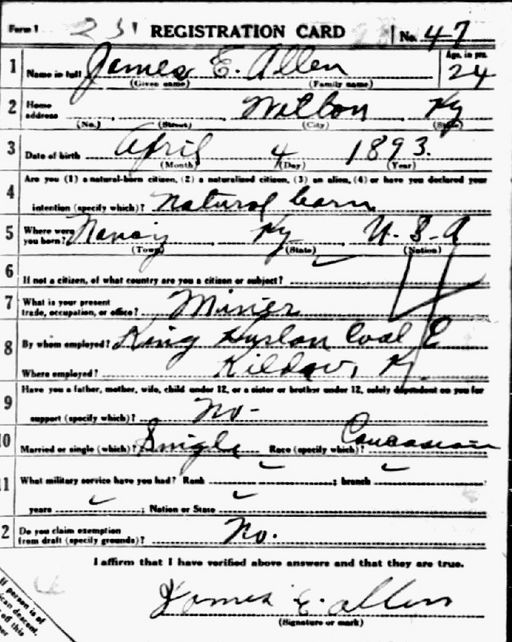 Form 1 231 REGISTRATION CARD No. 47
1 Name in full James E. Allen Age, in yrs. 24
(Given name) (Family name)
2 Home address Wilton Ky
(No.) (Street) (City) (State)
3 Date of birth April 4 1893.
(Month) (Day) (Year)
4 Are you (1) a natural-born citizen, (2) a naturalized citizen, (3) an alien, (4) or have you declared your
intention (specify which)? Natural born
5 Where were you born? Nancy Ky U. S. A
(Town) (State) (Nation)
6 If not a citizen, of what country are you a citizen or subject?
7 What is your present trade, occupation, or office? Miner
8 By whom employed? King Coal
Where employed?
9 Have you a father, mother, wife, child under 12, or a sister or brother under 12, solely dependent on you for
support (specify which)? No -
10 Married or single (which)? Single Race (specify which)? Caucasian
11 What military service have you had? Rank ; branch
years ; Nation or State
2 Do you claim exemption from draft (specify grounds)? No.
I affirm that I have verified above answers and that they are true.
James E. Allen
(Signature or mark)
If person is of
can descent,
off this